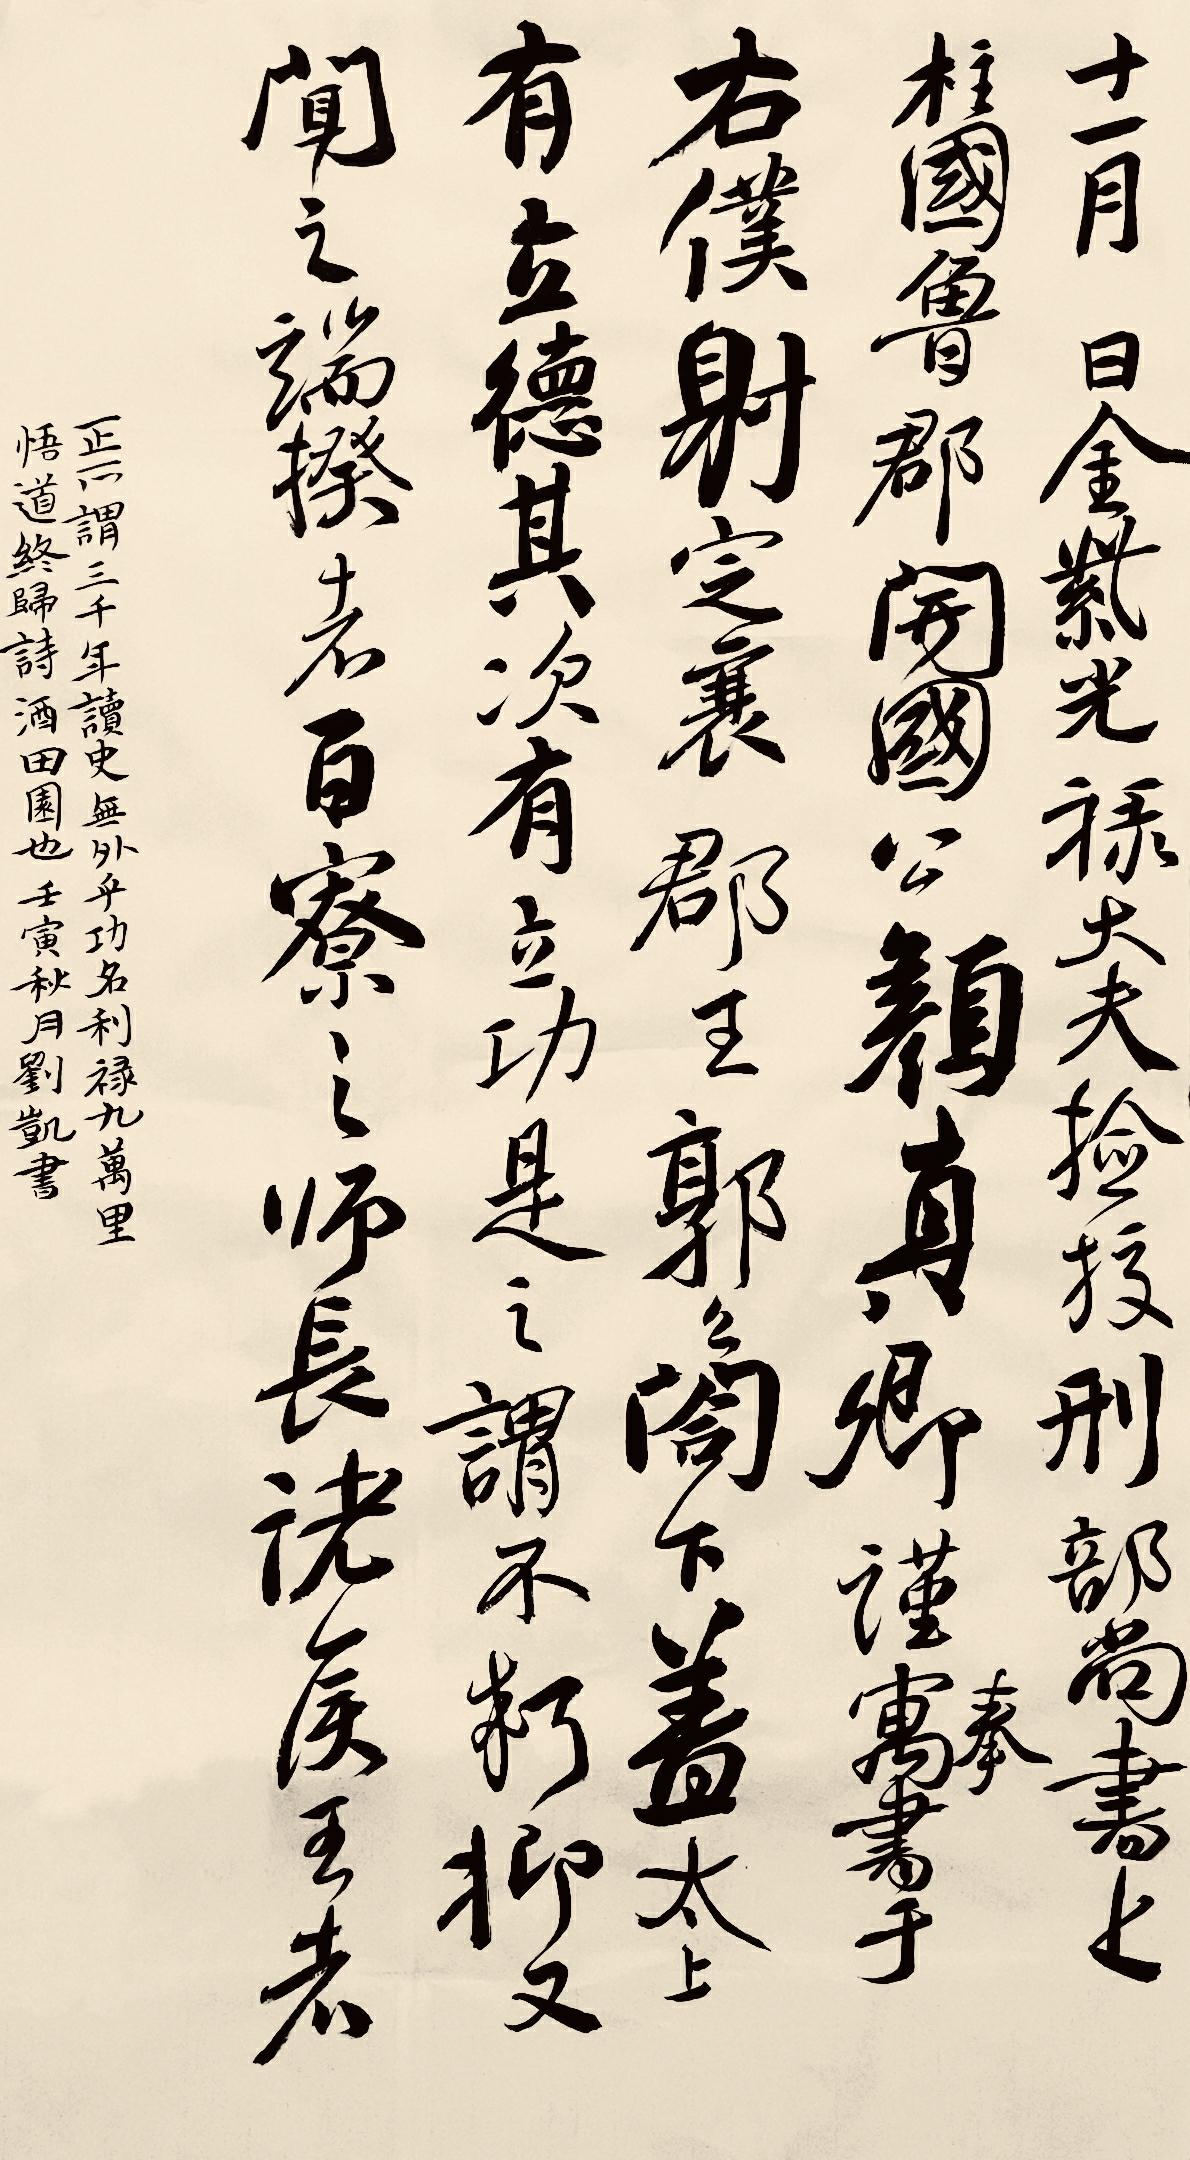 十一月 日金紫光禄大夫撿挍刑部尚書上
柱國魯郡開國公顏真卿謹奉寓書于
右僕射定襄郡王郭公閤下盖太上
有立德其次有立功是之謂不朽抑又
聞之端揆者百寮之师長诸侯王者
正所謂三千年讀史無外乎功名利禄九萬里
悟道終歸詩酒田園也壬寅秋月劉凱書